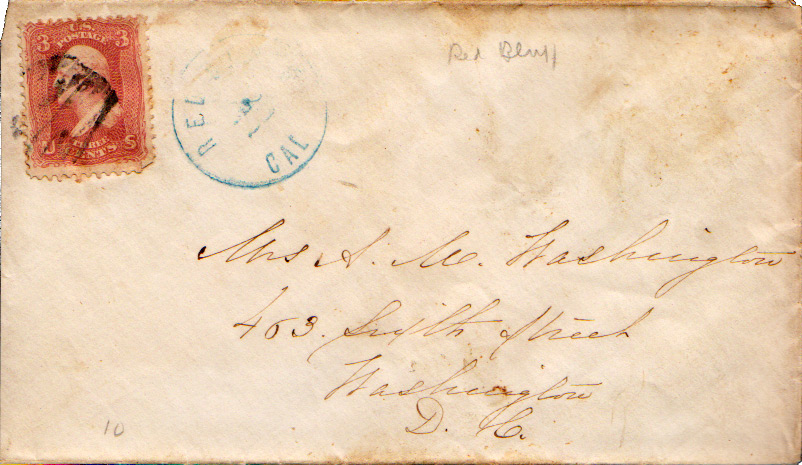 3 U.S. 3
POSTAGE
U THREE S
CENTS
RED
CAL
Red Bluff
Mrs A. M. Washington
463. Sixth Street
Washington
D. C.
10